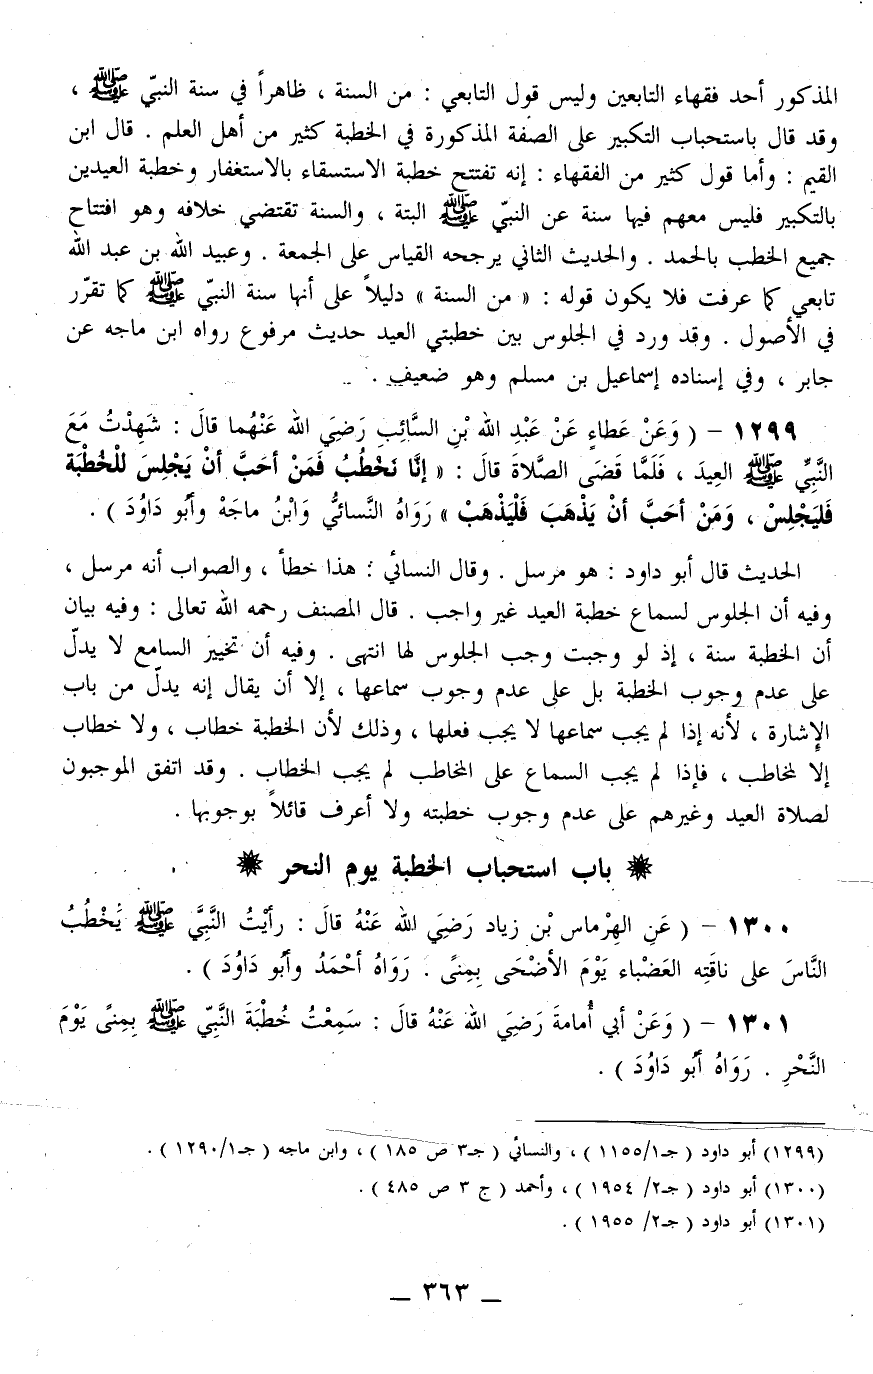 المذكور أحد فقهاء التابعين وليس قول التابعي : من السنة ، ظاهراً في سنة النبيّ ﷺ ،
وقد قال باستحباب التكبير على الصفة المذكورة في الخطبة كثير من أهل العلم . قال ابن
القيم : وأما قول كثير من الفقهاء : إنه تفتتح خطبة الاستسقاء بالاستغفار وخطبة العيدين
بالتكبير فليس معهم فيها سنة عن النبيّ ﷺ البتة ، والسنة تقتضي خلافه وهو افتتاح
جميع الخطب بالحمد . والحديث الثاني يرجحه القياس على الجمعة . وعبيد الله بن عبد الله
تابعي كما عرفت فلا يكون قوله : « من السنة » دليلاً على أنها سنة النبيّ ﷺ كما تقرّر
في الأصول . وقد ورد في الجلوس بين خطبتي العيد حديث مرفوع رواه ابن ماجه عن
جابر ، وفي إسناده إسماعيل بن مسلم وهو ضعيف .
١٢٩٩ – ( وَعَنْ عَطاءٍ عَنْ عَبْدِ الله بْنِ السَّائِبِ رَضِيَ الله عَنْهُما قالَ : شَهِدْتُ مَعَ
النَّبِيِّ ﷺ العِيدَ ، فَلَمَّا قَضَى الصَّلاةَ قالَ : « إنَّا نَخْطُبُ فَمَنْ أحَبَّ أنْ يَجْلِسَ لِلْخُطْبَةِ
فَليَجْلِسْ ، وَمَنْ أحَبَّ أنْ يَذْهَبَ فَلْيَذْهَبْ » رَوَاهُ النَّسائيُّ وَابْنُ ماجَهْ وأبُو دَاوُدَ ) .
الحديث قال أبو داود : هو مرسل . وقال النسائي : هذا خطأ ، والصواب أنه مرسل ،
وفيه أن الجلوس لسماع خطبة العيد غير واجب . قال المصنف رحمه الله تعالى : وفيه بيان
أن الخطبة سنة ، إذ لو وجبت وجب الجلوس لها انتهى . وفيه أن تخيير السامع لا يدلّ
على عدم وجوب الخطبة بل على عدم وجوب سماعها ، إلا أن يقال إنه يدلّ من باب
الإشارة ، لأنه إذا لم يجب سماعها لا يجب فعلها ، وذلك لأن الخطبة خطاب ، ولا خطاب
إلا لمخاطب ، فإذا لم يجب السماع على المخاطب لم يجب الخطاب . وقد اتفق الموجبون
لصلاة العيد وغيرهم على عدم وجوب خطبته ولا أعرف قائلاً بوجوبها .
❋ باب استحباب الخطبة يوم النحر ❋
١٣٠٠ – ( عَنِ الهِرْماسِ بْنِ زياد رَضِيَ الله عَنْهُ قالَ : رأيْتُ النَّبِيَّ ﷺ يَخْطُبُ
النَّاسَ على ناقَتِه العَضْباء يَوْمَ الأضْحَى بِمِنًى . رَوَاهُ أحْمَدُ وأبُو دَاوُدَ ) .
١٣٠١ – ( وَعَنْ أبي أُمامةَ رَضِيَ الله عَنْهُ قالَ : سَمِعْتُ خُطْبَةَ النَّبِيّ ﷺ بِمِنًى يَوْمَ
النَّحْرِ . رَوَاهُ أبُو دَاوُدَ ) .
(١٢٩٩) أبو داود ( جـ١١٥٥/١ ) ، والنسائي ( جـ٣ ص ١٨٥ ) ، وابن ماجه ( جـ١٢٩٠/١ ) .
(١٣٠٠) أبو داود ( جـ٢/ ١٩٥٤ ) ، وأحمد ( ج ٣ ص ٤٨٥ ) .
(١٣٠١) أبو داود ( جـ٢/ ١٩٥٥ ) .
ــ ٣٦٣ ــ